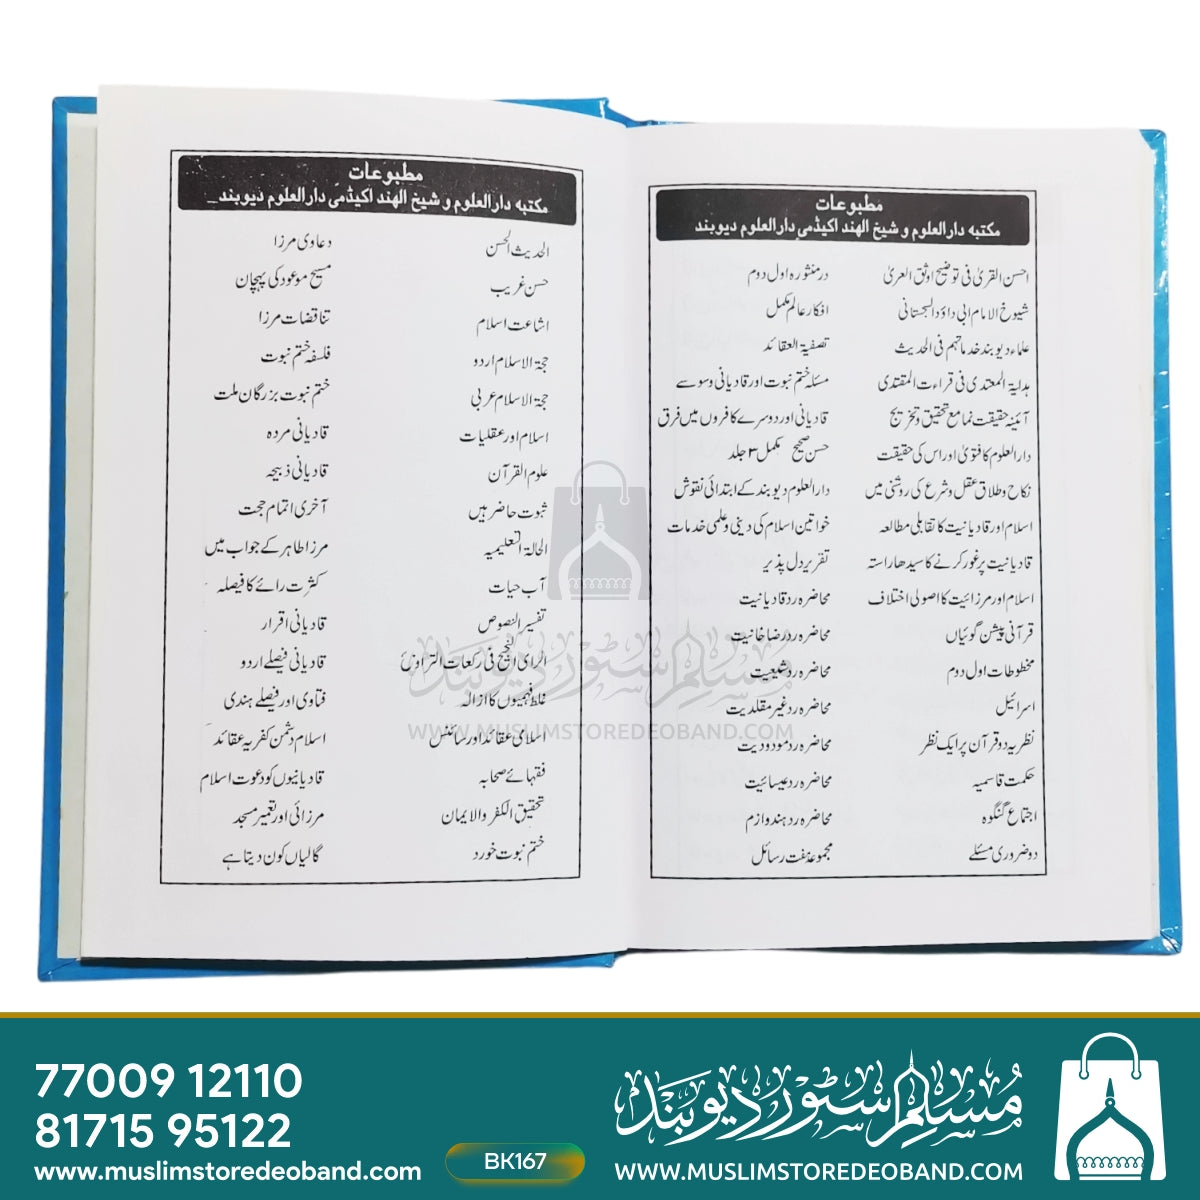 مطبوعات
مکتبہ دارالعلوم و شیخ الہند اکیڈمی دارالعلوم دیوبند
احسن القریٰ فی توضیح اوثق العریٰ
در منثورہ اول دوم
شیوخ الامام ابی داؤد السجستانی
افکار عالم مکمل
علماء دیوبند خدماتہم فی الحدیث
تصفیۃ العقائد
ہدایۃ المعتدی فی قراءت المقتدی
مسئلہ ختم نبوت اور قادیانی وسوسے
آئینہ حقیقت نما مع تحقیق و تخریج
قادیانی اور دوسرے کافروں میں فرق
دارالعلوم کا فتویٰ اور اس کی حقیقت
حسن صحیح مکمل ۳ جلد
نکاح و طلاق عقل و شرع کی روشنی میں
دارالعلوم دیوبند کے ابتدائی نقوش
اسلام اور قادیانیت کا تقابلی مطالعہ
خواتین اسلام کی دینی و علمی خدمات
قادیانیت پر غور کرنے کا سیدھا راستہ
تقریر دل پذیر
اسلام اور مرزائیت کا اصولی اختلاف
محاضرہ رد قادیانیت
قرآنی پیشن گوئیاں
محاضرہ رد رضاخانیت
مخطوطات اول دوم
محاضرہ رد شیعیت
اسرائیل
محاضرہ رد غیر مقلدیت
نظریہ دو قرآن پر ایک نظر
محاضرہ رد مودودیت
حکمت قاسمیہ
محاضرہ رد عیسائیت
اجتماع گنگوہ
محاضرہ رد ہندوازم
دو ضروری مسئلے
مجموعہ ہفت رسائل
مطبوعات
مکتبہ دارالعلوم و شیخ الہند اکیڈمی دارالعلوم دیوبند
الحدیث الحسن
دعاوی مرزا
حسن غریب
مسیح موعود کی پہچان
اشاعت اسلام
تناقضات مرزا
حجۃ الاسلام اردو
فلسفہ ختم نبوت
حجۃ الاسلام عربی
ختم نبوت بزرگان ملت
اسلام اور عقلیات
قادیانی مردہ
علوم القرآن
قادیانی ذبیحہ
ثبوت حاضر ہیں
آخری اتمام حجت
الحالۃ التعلیمیہ
مرزا طاہر کے جواب میں
آب حیات
کثرت رائے کا فیصلہ
تفسیر النصوص
قادیانی اقرار
الرای النجیح فی رکعات التراویح
قادیانی فیصلے اردو
غلط فہمیوں کا ازالہ
فتاوی اور فیصلے ہندی
اسلامی عقائد اور سائنس
اسلام دشمن کفریہ عقائد
فقہائے صحابہ
قادیانیوں کو دعوت اسلام
تحقیق الکفر والایمان
مرزائی اور تعمیر مسجد
ختم نبوت خورد
گالیاں کون دیتا ہے
مسلم سٹور دیوبند
WWW.MUSLIMSTOREDEOBAND.COM
77009 12110
81715 95122
www.muslimstoredeoband.com
BK167
مسلم سٹور دیوبند
WWW.MUSLIMSTOREDEOBAND.COM